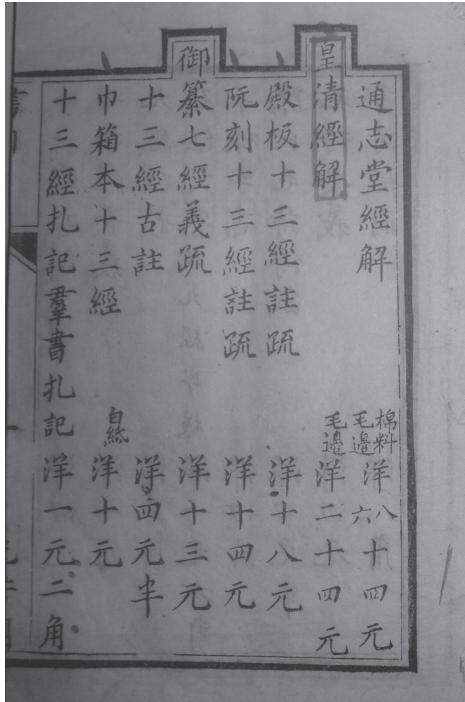 通志堂經解 棉料毛邊 洋八六十四元
皇清經解 毛邊 洋二十四元
殿板十三經註疏 洋十八元
阮刻十三經註疏 洋十四元
御纂七經義疏 洋十三元
十三經古註 洋四元半
巾箱本十三經 白紙 洋十元
十三經札記羣書札記 洋一元二角